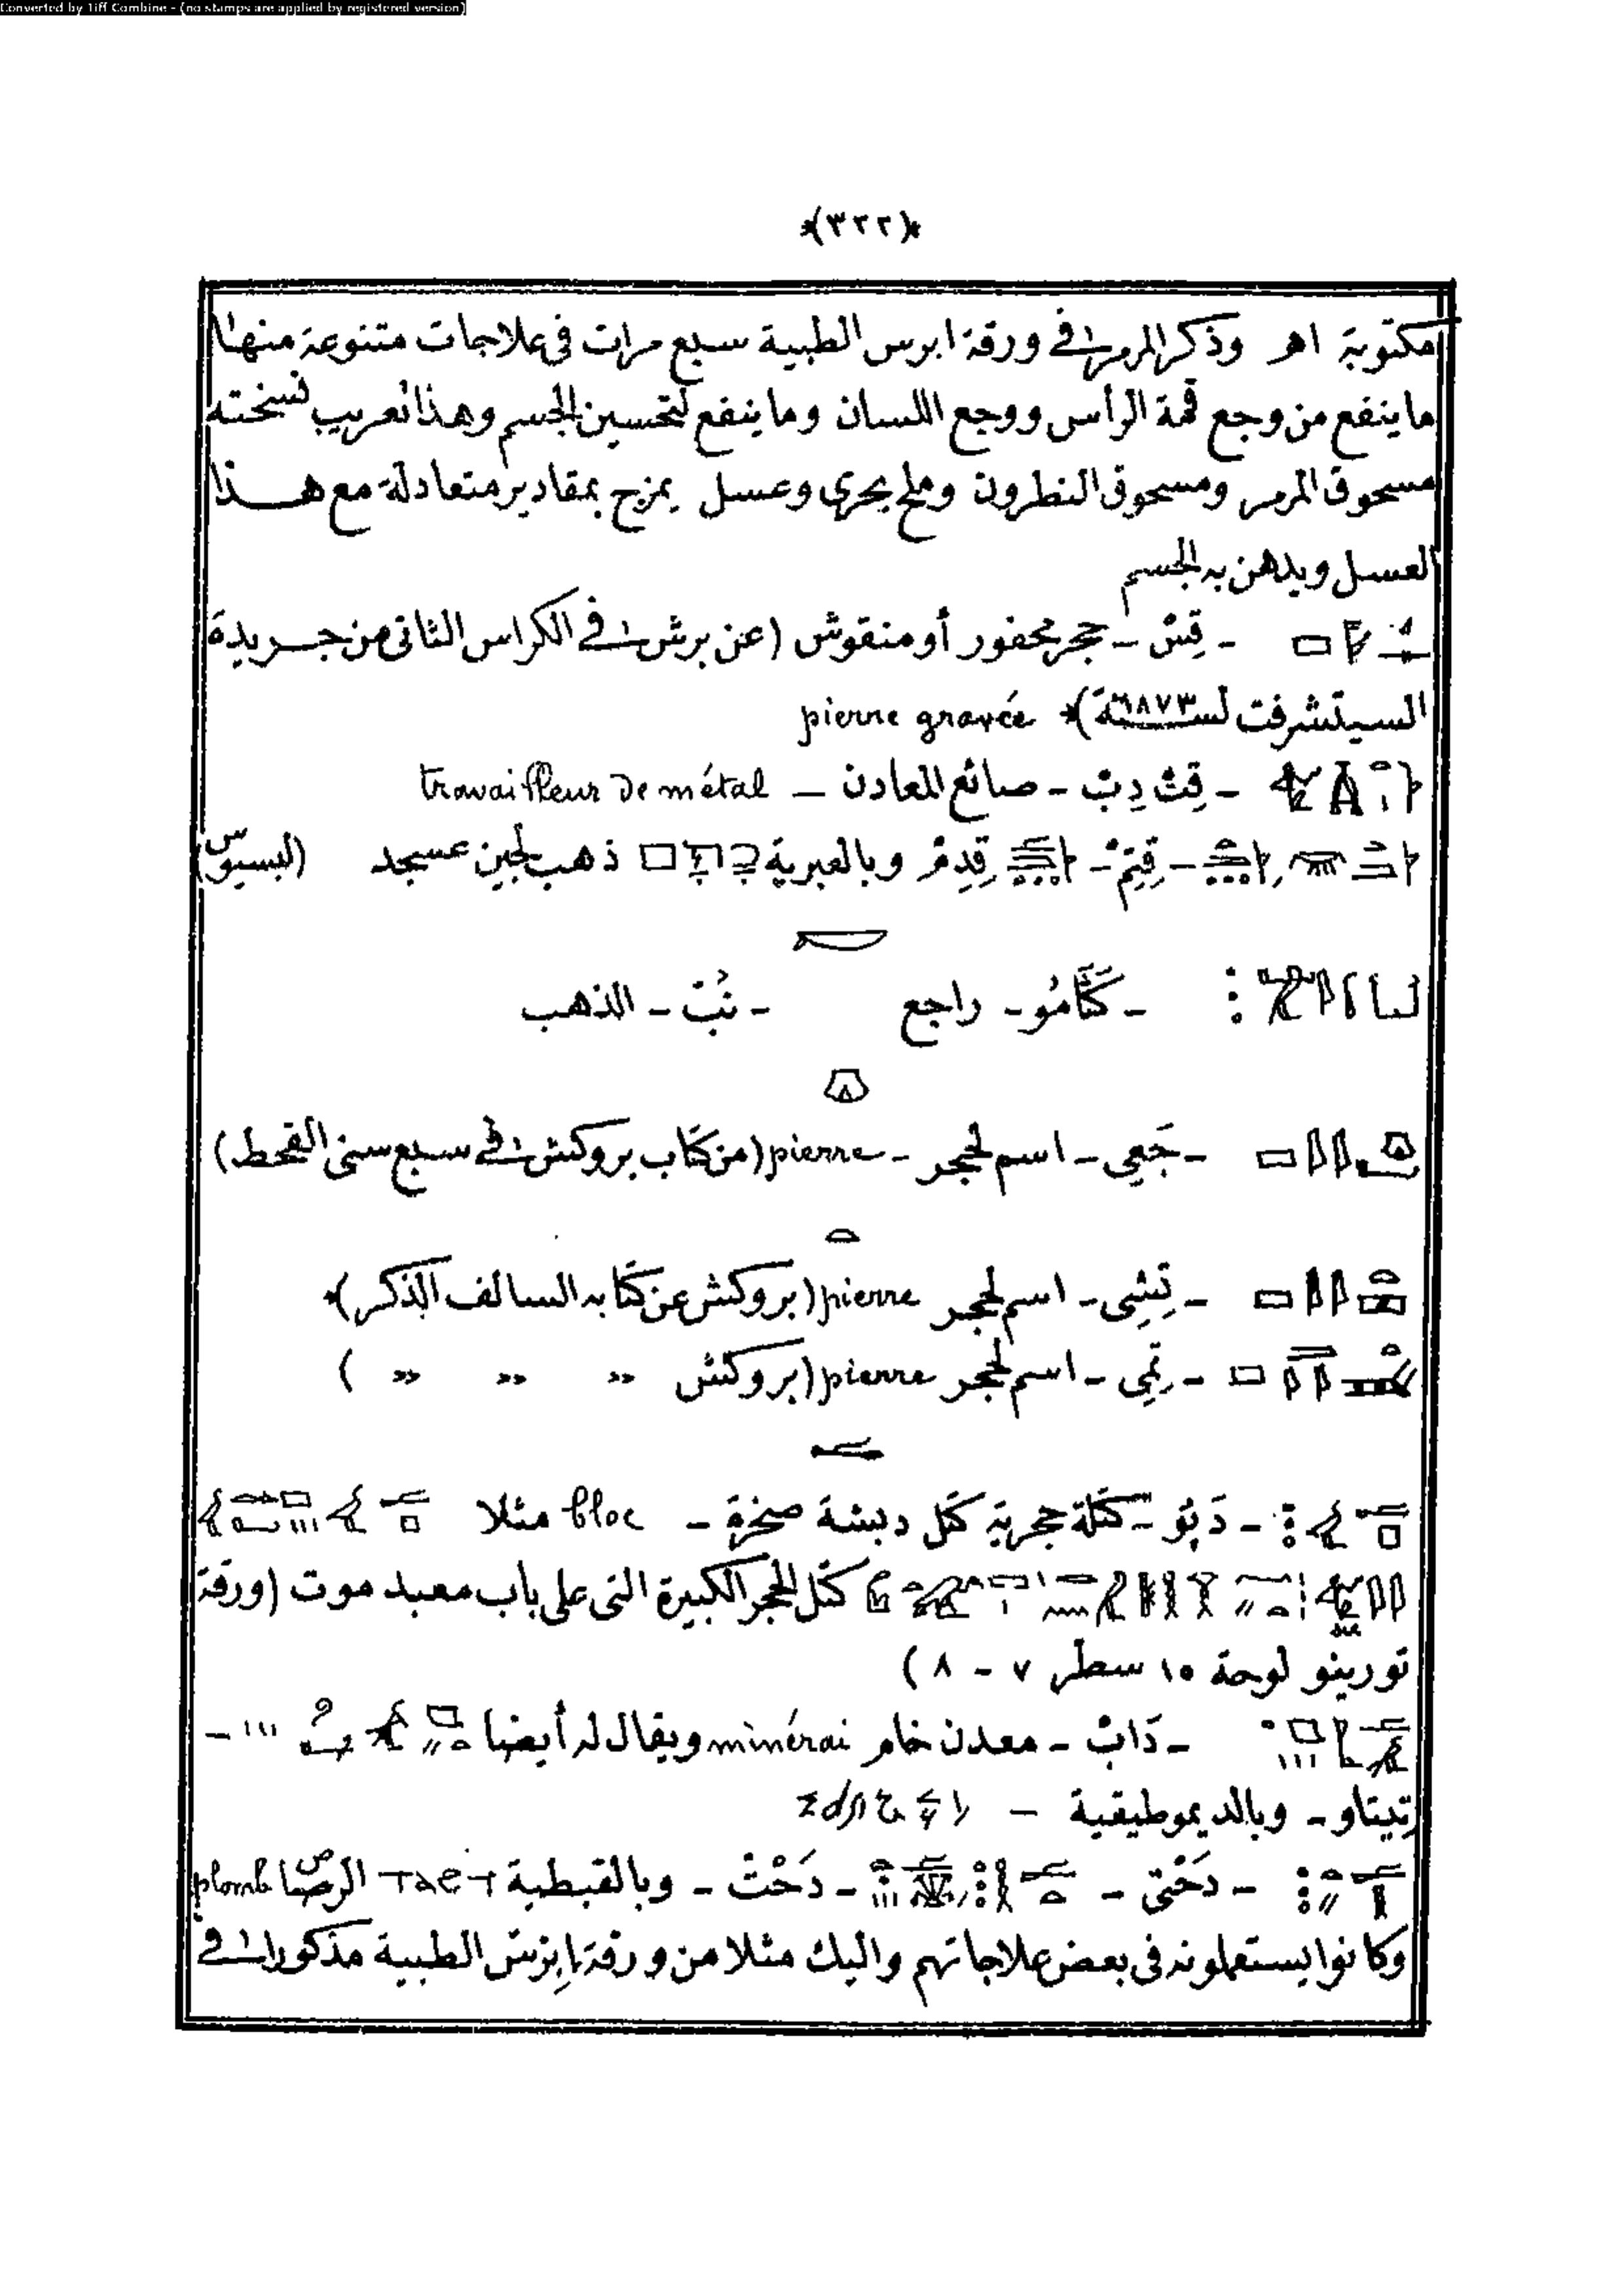 Converted by Tiff Combine - (no stamps are applied by registered version)
﴿٣٢٢﴾
مكتوبة اهر وذكر المرمر في ورقة ابرس الطبية سبع مرات في علاجات متنوعة منها
ما ينفع من وجع قمة الرأس ووجع اللسان وما ينفع لتحسين الجسم وهذا تعريب نسخته
مسحوق المرمر ومسحوق النطرون وملح بحرى وعسل يمزج بمقادير متعادلة مع هذا
العسل ويدهن به الجسم
- قِسْ - حجر محفور أو منقوش (عن برش في الكراس الثانى من جريدة
السيتشرفت لسنة ١٨٧٣) pierre gravée
- قِتْ دِبْ - صائع المعادن - travailleur de métal
- قِتِمْ - قِدِمْ وبالعبرية ذهب لجين عسجد (لبسيوس)
- كَتَّامُو - راجع - نُبْ - الذهب
- جَعِى - اسم لحجر - pierre (من كتاب بروكش في سبع سنى القحط)
- تِشِى - اسم لحجر pierre (بروكش عن كتابه السالف الذكر)
- تِمِى - اسم لحجر pierre (بروكش » » » )
- دَبُو - كتلة حجرية كتل دبشة صخرة - bloc مثلا
كتل الحجر الكبيرة التى على باب معبد موت (ورقة
تورينو لوحة ١٥ سطر ٧ - ٨ )
- دَابْ - معدن خام minérai ويقال له أيضا -
تيتاو - وبالديموطيقية -
- دَحْتى - - دَحْتْ - وبالقبطية ⲧⲁϩⲧ الرصاص plomb
وكانوا يستعملونه في بعض علاجاتهم واليك مثلا من ورقة إبرس الطبية مذكورا في